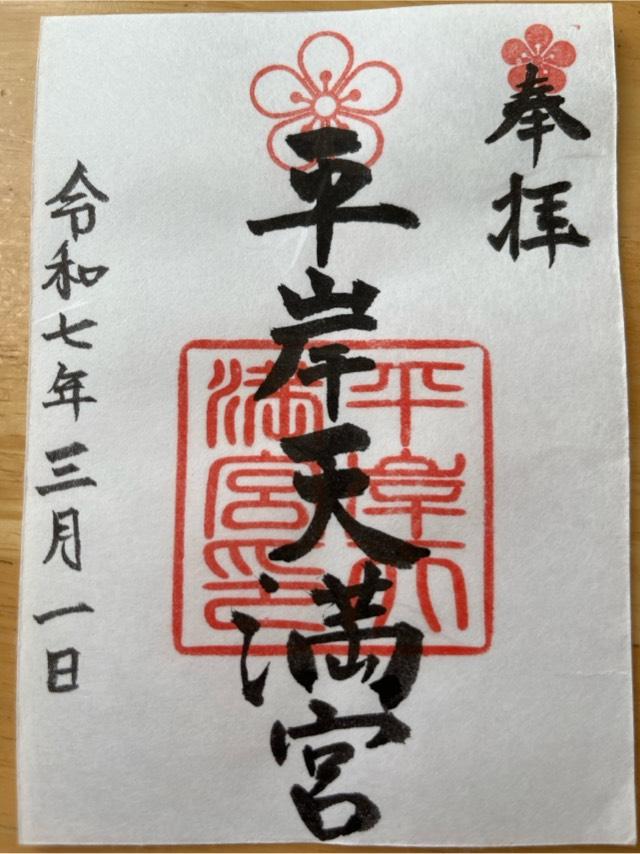 奉拝
平岸天満宮
平岸天
満宮印
令和七年三月一日